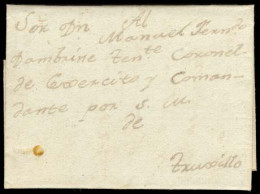 Al
Sor Dn Manuel Fernz
Dambrine Tente Coronel
de Exercito y Coman-
dante por S. M.
de
Truxillo